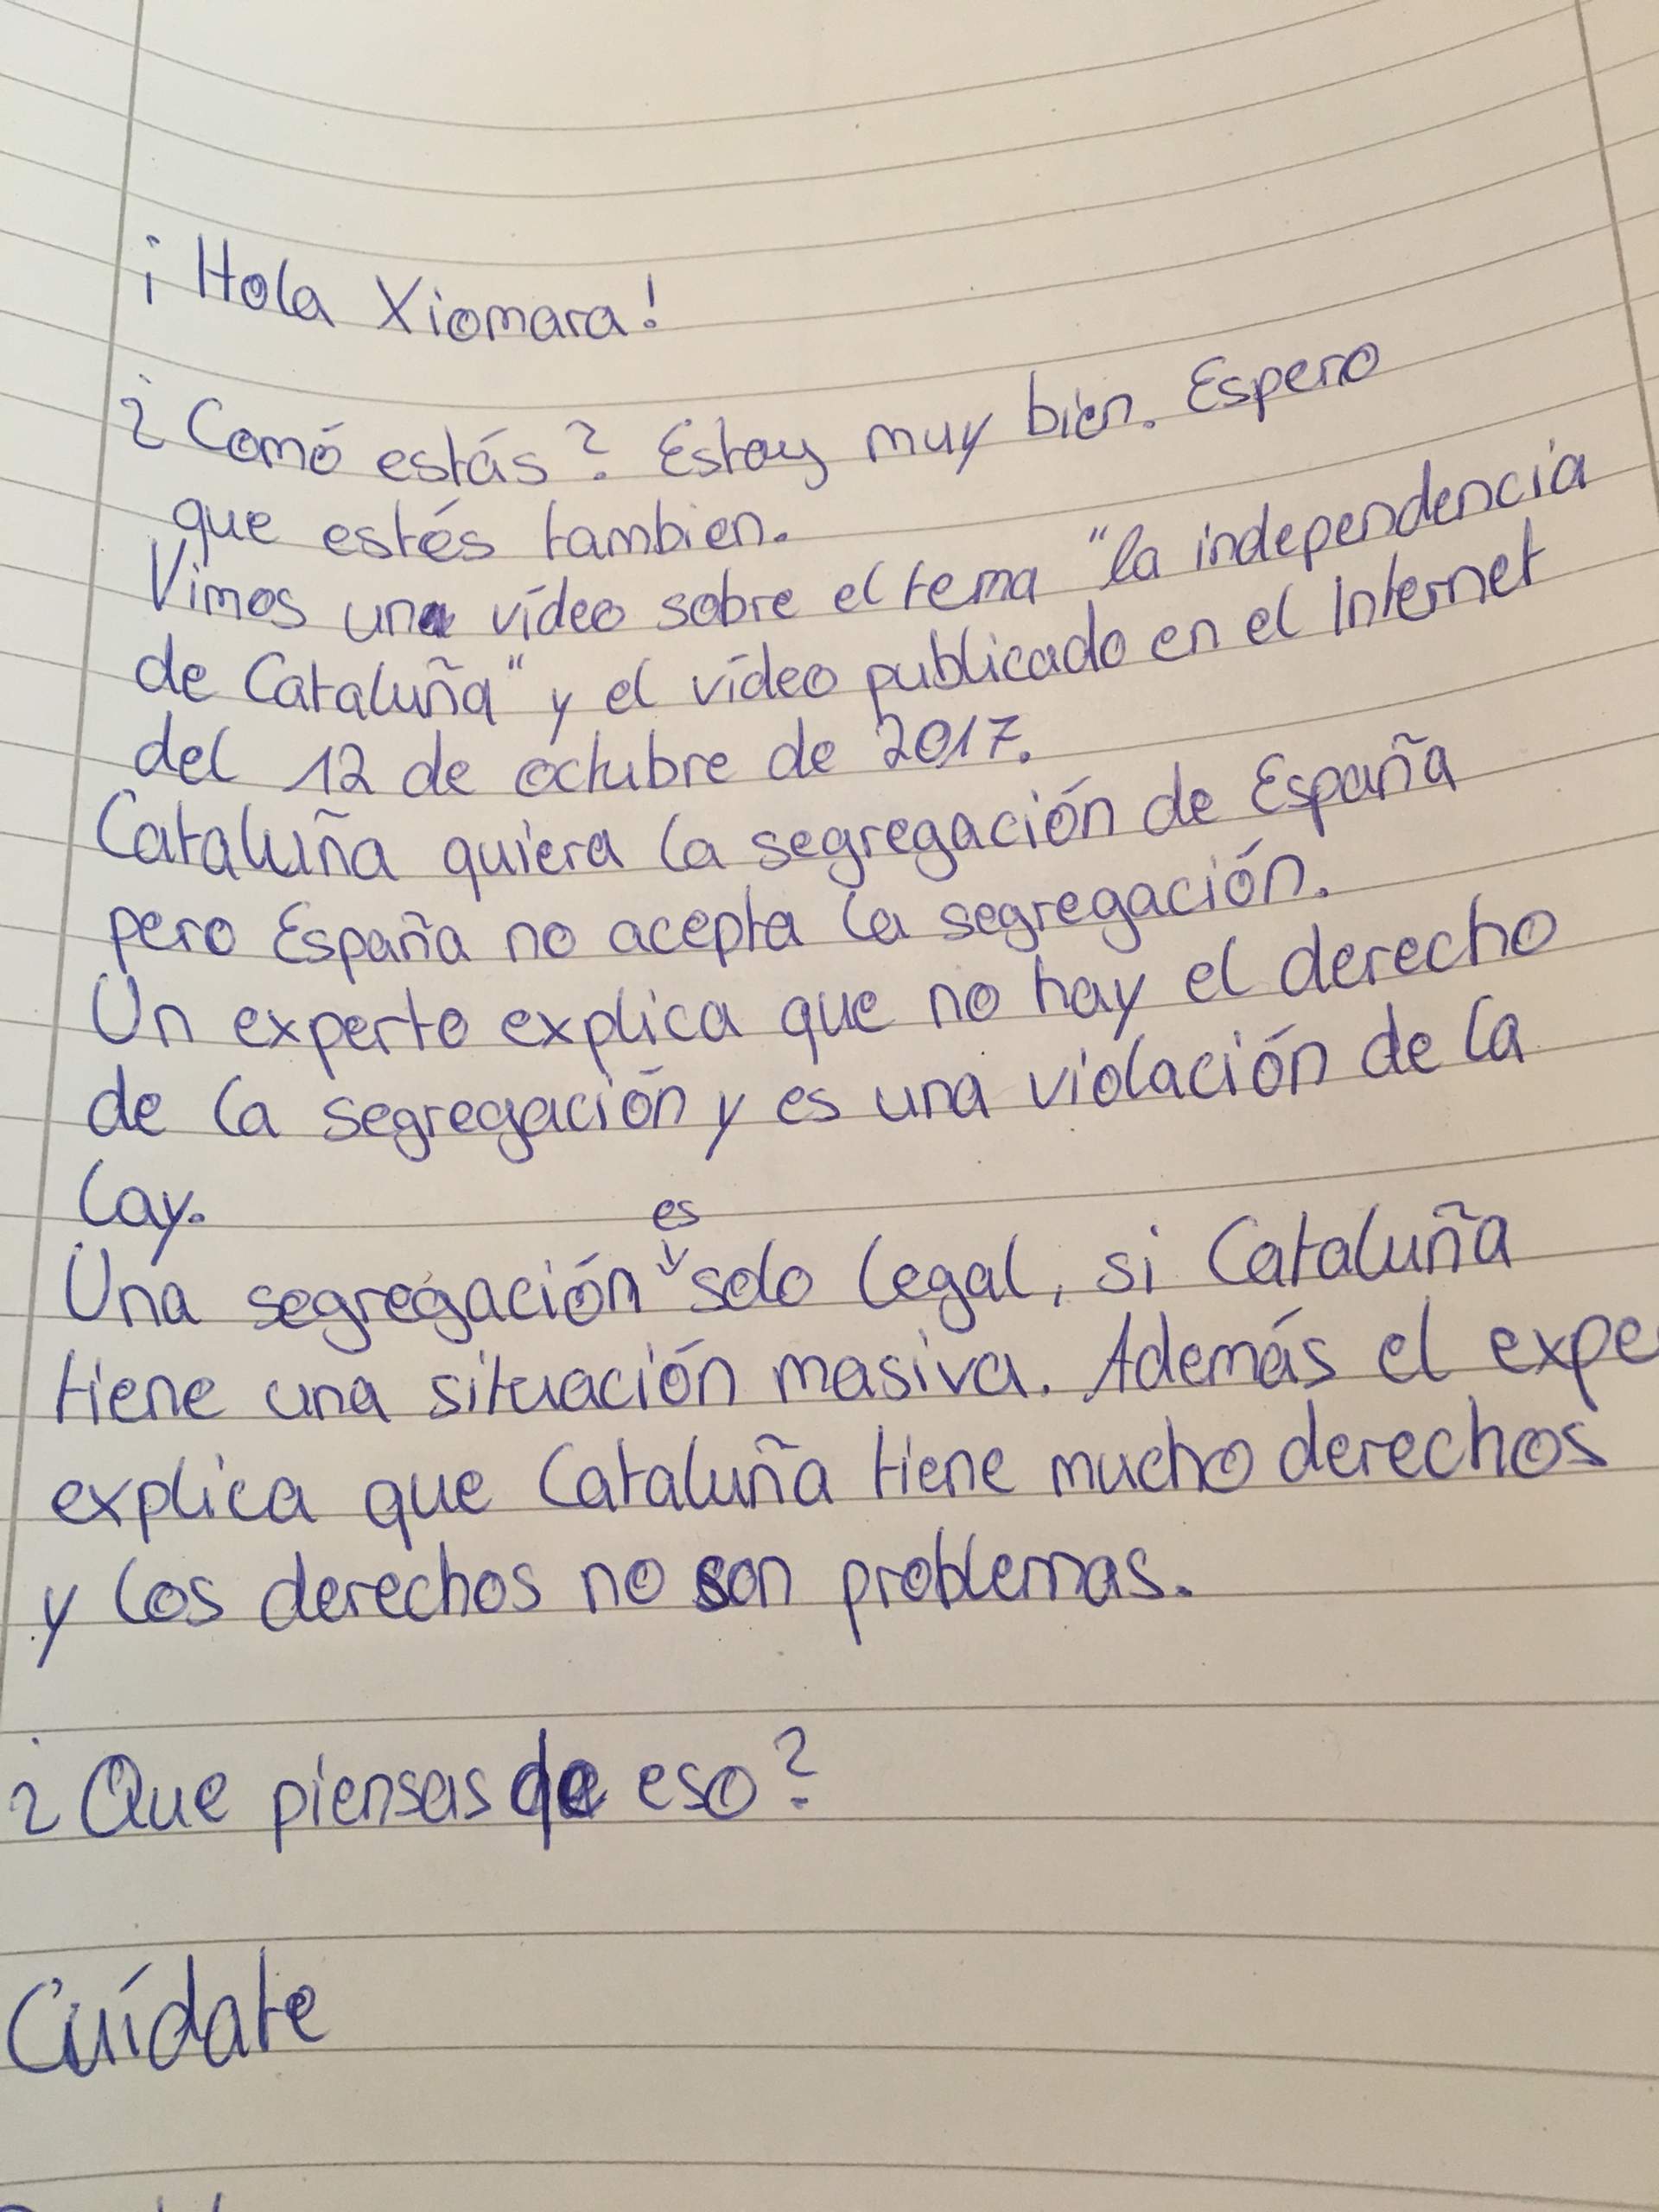 ¡Hola Xiomara!
¿Comó estás? Estoy muy bien. Espero
que estés tambien.
Vimos una vídeo sobre el tema "la independencia
de Cataluña" y el vídeo publicado en el Internet
del 12 de octubre de 2017.
Cataluña quiera la segregación de España
pero España no acepta la segregación.
Un experto explica que no hay el derecho
de la segregación y es una violación de la
lay.
Una segregación es solo legal, si Cataluña
tiene una situación masiva. Además el expe
explica que Cataluña tiene mucho derechos
y los derechos no son problemas.
¿Que piensas de eso?
Cuídate